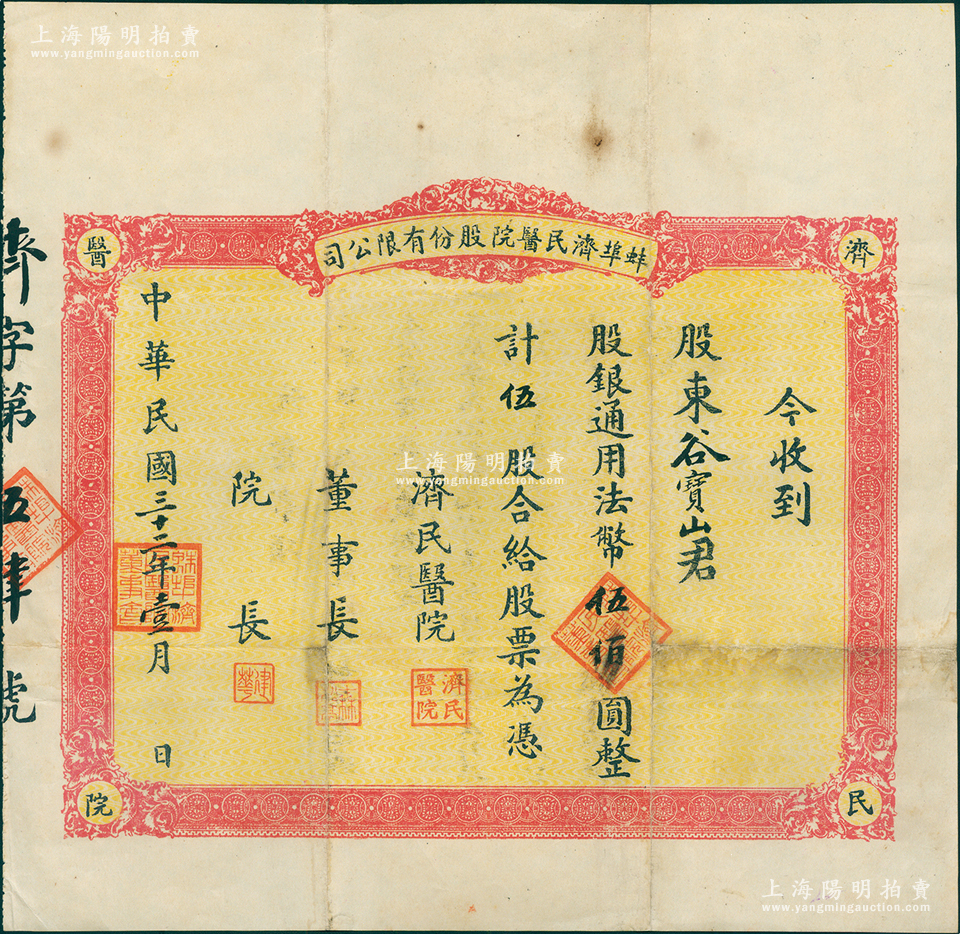 上海陽明拍賣
www.yangmingauction.com
上海陽明拍賣
www.yangmingauction.com
蚌埠濟民醫院股份有限公司
濟
民
醫
院
今收到
股東谷寶山君
股銀通用法幣伍佰圓整
計伍股合給股票為憑
濟民醫院
濟民醫院
董事長
院長
建華
中華民國三十二年壹月 日
濟字第五肆號
上海陽明拍賣
www.yangmingauction.com
上海陽明拍賣
www.yangmingauction.com